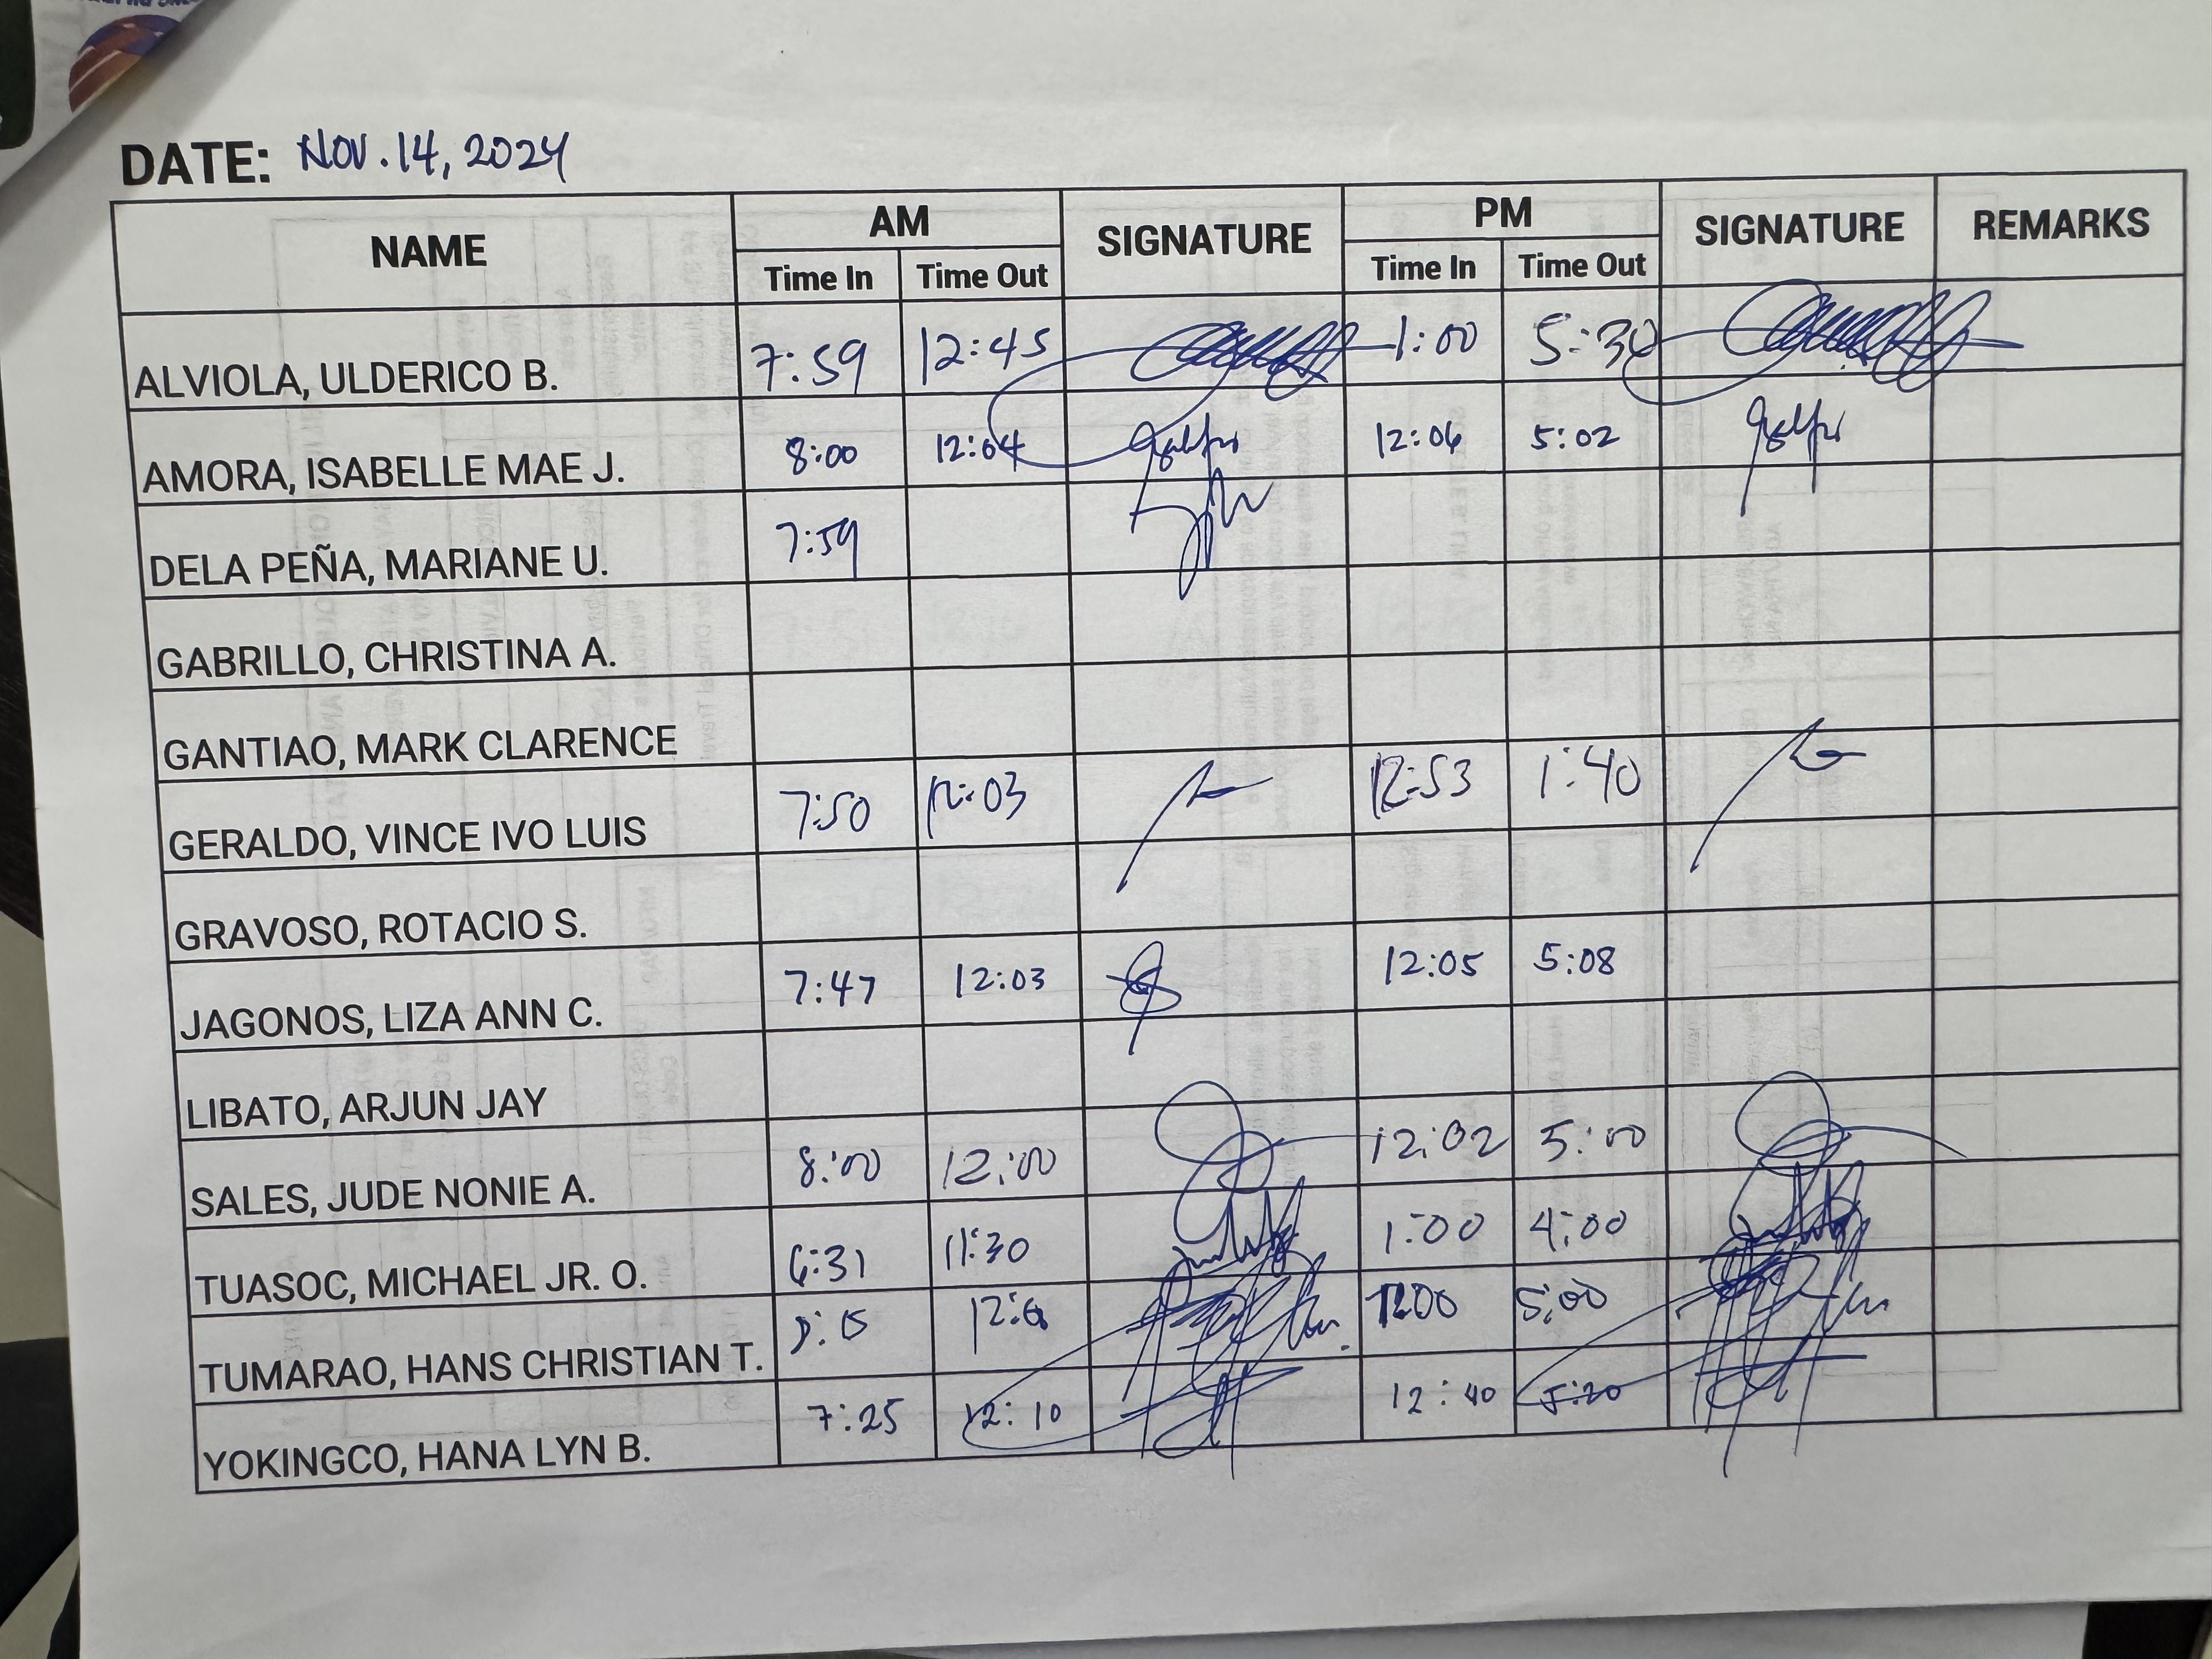 DATE: NOV. 14, 2024
NAME AM SIGNATURE PM SIGNATURE REMARKS
Time In Time Out Time In Time Out
ALVIOLA, ULDERICO B. 7:59 12:45 1:00 5:30
AMORA, ISABELLE MAE J. 8:00 12:04 12:06 5:02
DELA PEÑA, MARIANE U. 7:59
GABRILLO, CHRISTINA A.
GANTIAO, MARK CLARENCE
GERALDO, VINCE IVO LUIS 7:50 12:03 12:53 1:40
GRAVOSO, ROTACIO S.
JAGONOS, LIZA ANN C. 7:47 12:03 12:05 5:08
LIBATO, ARJUN JAY
SALES, JUDE NONIE A. 8:00 12:00 12:02 5:00
TUASOC, MICHAEL JR. O. 6:31 11:30 1:00 4:00
TUMARAO, HANS CHRISTIAN T. 5:00
YOKINGCO, HANA LYN B. 7:25 12:10 12:40 5:20